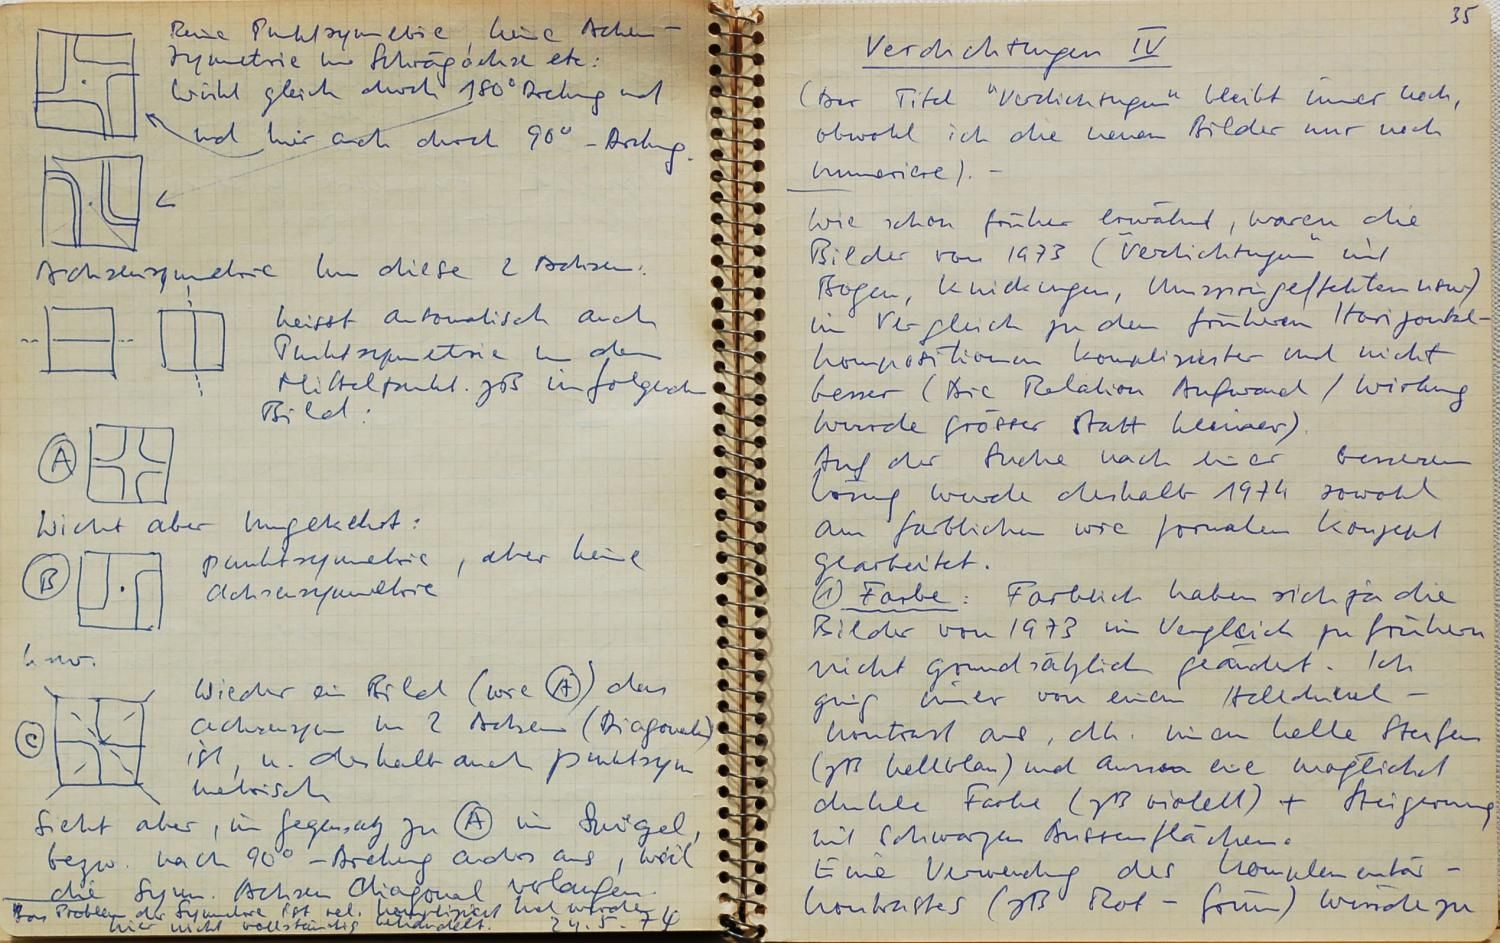 Reine Punktsymmetrie, keine Achsen-
symmetrie um Schrägachse etc:
Wirkt gleich durch 180° Drehung und
und hier auch durch 90° - Drehung.
Achsensymmetrie um diese 2 Achsen:
heisst automatisch auch
Punktsymmetrie um den
Mittelpunkt. zB im folgenden
Bild:
A
Nicht aber umgekehrt:
B
punktsymmetrie, aber keine
Achsensymmetrie
bzw.
C
Wieder ein Bild (wie A) das
achsensym um 2 Achsen (Diagonalen)
ist, u. deshalb auch punktsym
metrisch
Sieht aber, im Gegensatz zu A im Spiegel,
bezw. nach 90° - Drehung anders aus, weil
die Symm. Achsen diagonal verlaufen.
Das Problem der Symmetrie ist rel. kompliziert und wurde
hier nicht vollständig behandelt. 24.5.74
35
Verdichtungen IV
(Der Titel "Verdichtungen" bleibt immer noch,
obwohl ich die neuen Bilder nur noch
numeriere). -
Wie schon früher erwähnt, waren die
Bilder von 1973 ("Verdichtungen" mit
Bogen, Knickungen, Umspringeffekten usw)
im Vergleich zu den früheren Horizontal-
kompositionen komplizierter und nicht
besser (Die Relation Aufwand / Wirkung
wurde grösser statt kleiner).
Auf der Suche nach einer besseren
Lösung wurde deshalb 1974 sowohl
am farblichen wie formalen Konzept
gearbeitet.
1) Farbe: Farblich haben sich ja die
Bilder von 1973 im Vergleich zu frühern
nicht grundsätzlich geändert. Ich
ging immer von einem Helldunkel-
kontrast aus, dh. innen helle Streifen
(zB hellblau) und aussen eine möglichst
dunkle Farbe (zB violett) + Steigerung
mit schwarzen Aussenflächen.
Eine Verwendung des Komplementär-
kontrastes (zB Rot - grün) würde zu